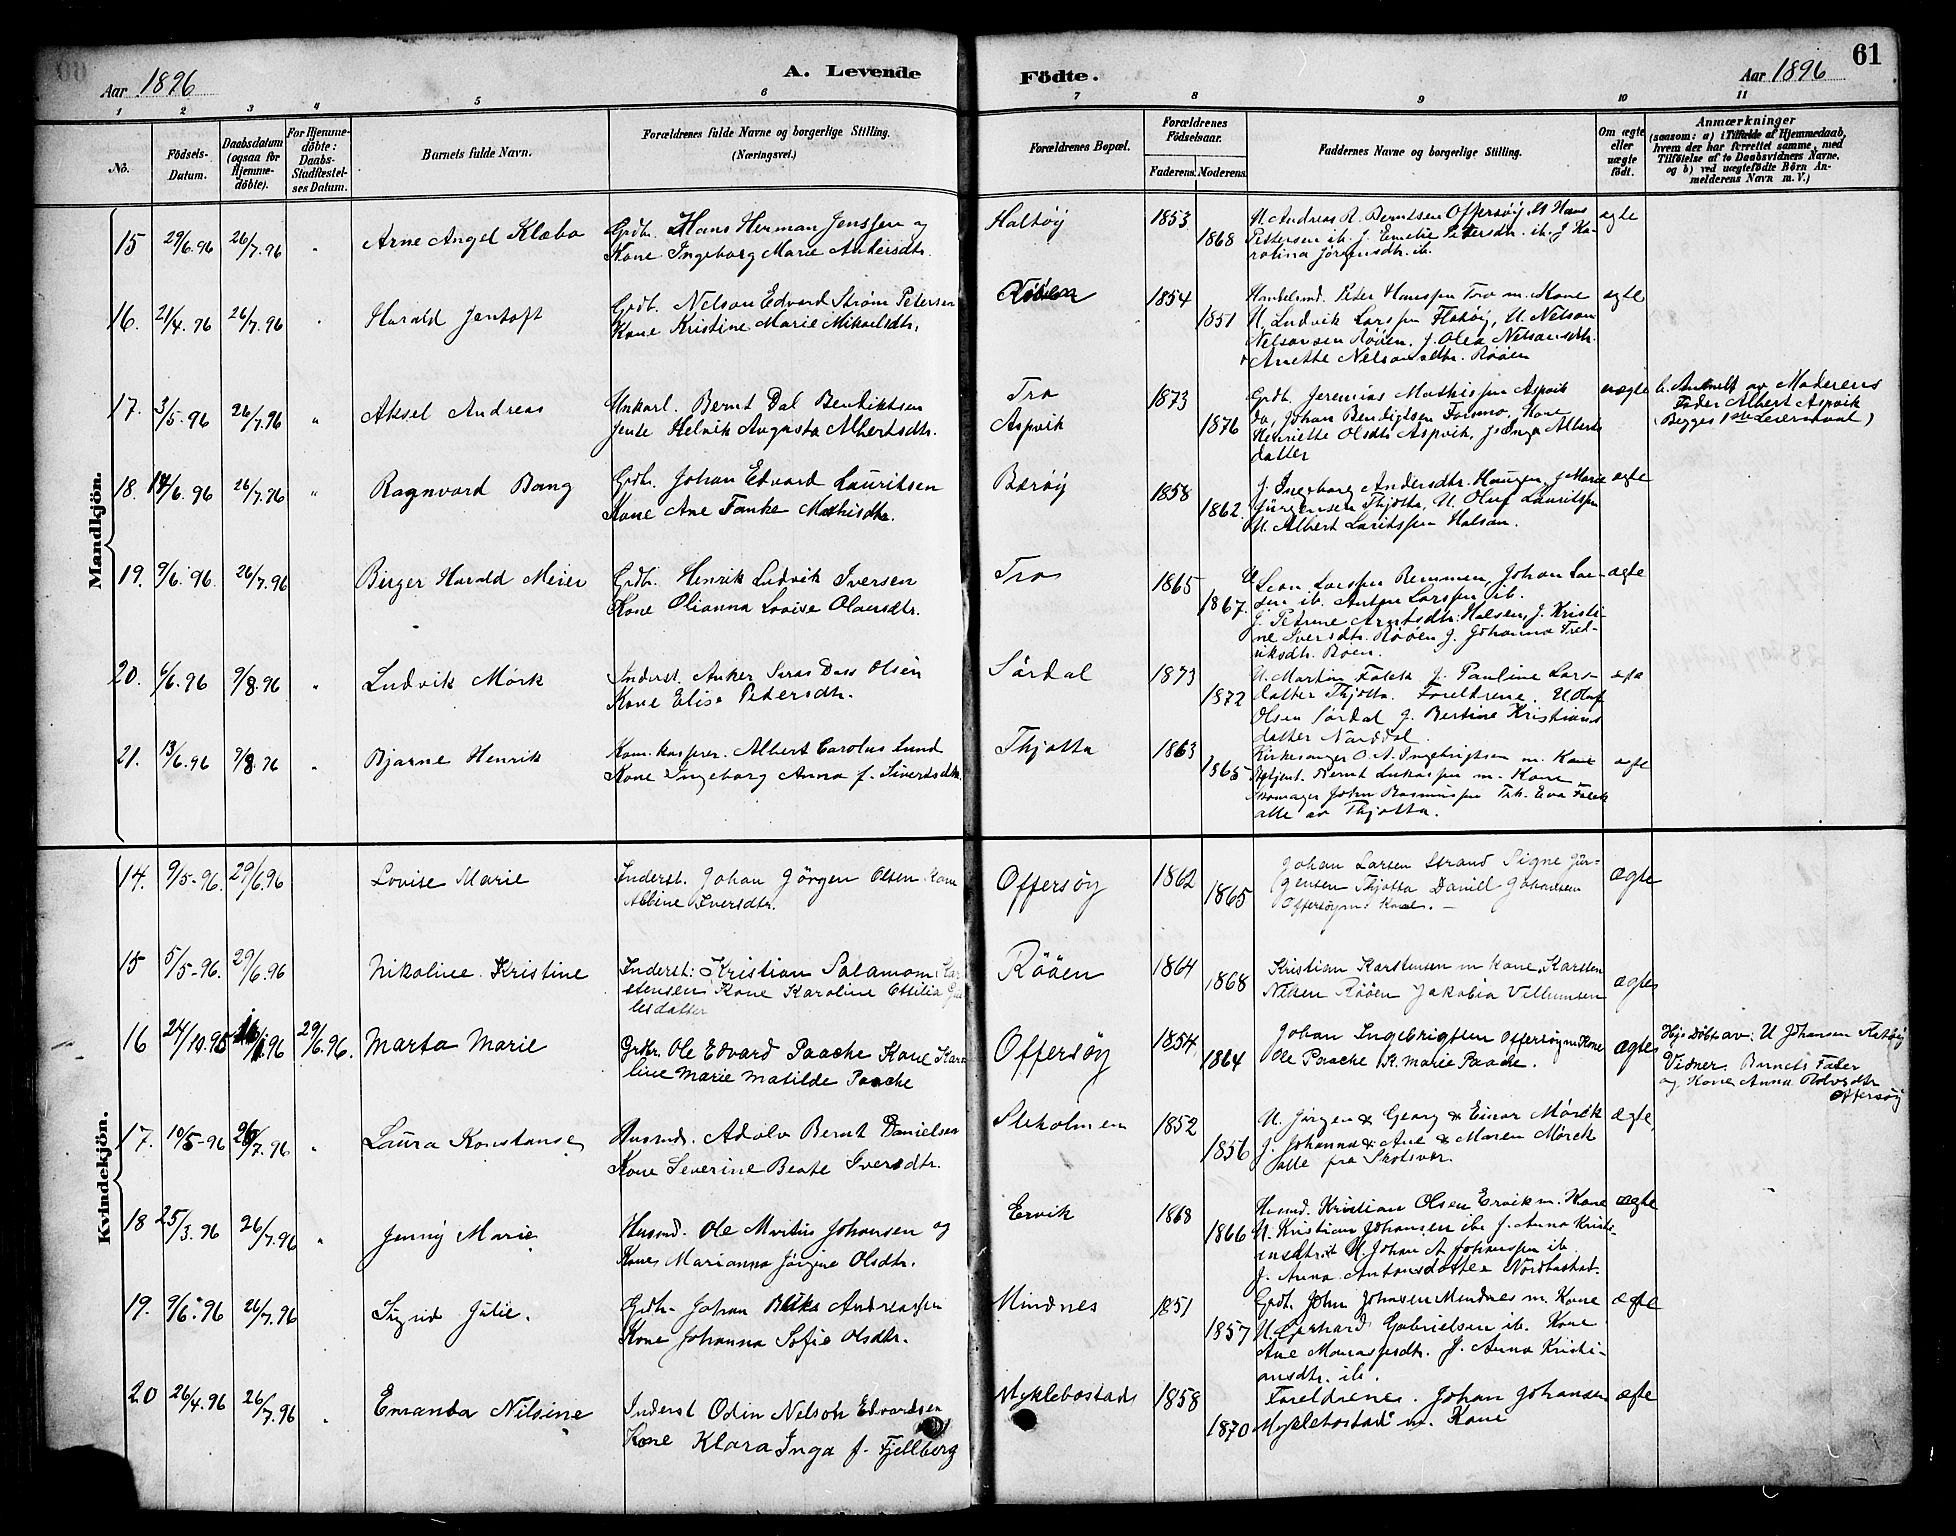 60
Aar 1896
A. Levende
Födte.
Aar 1896
61
1 2 3 4 5 6 7 8 9 10 11
No.
Födsels-Datum.
Daabsdatum (ogsaa for Hjemme-döbte).
For Hjemme-döbte: Daabs-Stadfæstel-ses Datum.
Barnets fulde Navn.
Forældrenes fulde Navne og borgerlige Stilling. (Næringsvei.)
Forældrenes Bopæl.
Forældrenes Födselsaar.
Faderens. Moderens.
Faddernes Navne og borgerlige Stilling.
Om ægte eller uægte födt.
Anmærkninger
(saasom: a) i Tilfælde af Hjemmedaab, hvem der har forrettet samme, med Tilföielse af to Daabsvidners Navne, og b) ved uægtefödte Börn An-melderens Navn m. V.)
Mandkjön.
15 29/6.96 26/7.96 " Arne Angel Klæbo
Grdb. Hans Herman Jenssen og
Kone Ingeborg Marie Ankersdtr.
Haltöy 1853 1868
U. Andreas R. Berntsen Offersöy, U Hans
Pettersen ib. J. Emelie Petersdtr. ib. J Ka-
rolina Jörgensdtr. ib.
ægte
16. 21/4.96 26/7.96 " Harald Jentoft
Grdb. Nelson Edvard Ström Petersen
Kone Kristine Marie Mikaelsdtr.
Rööen 1854 1851
Handelsmd. Peder Hanssen Tro m. Kone
U. Ludvik Larssen Flatöy, U. Nelson
Nelsonsen Rööen, J. Olea Nelsonsdtr.
Anette Nelsonsdtr. Rööen
ægte
17. 3/5.96 26/7.96 " Aksel Andreas
Unkarl. Bernt Dal Bendiktsen
Jente Helvik Augusta Albertsdtr.
Tro
Aspvik
1873 1876
Grdb. Jeremias Mathissen Aspvik
do. Johan Bendigtsen Forsmo, Kone
Henriette Olsdtr Aspvik, J. Inga Alberts
datter
uægte
b. Anmelt av Moderens
Fader Albert Aspvik
(Begges 1ste Leiersmaal)
18. 14/6.96 26/7.96 " Ragnvard Bang
Grdb. Johan Edvard Lauritsen
Kone Ane Tanke Mathisdtr.
Bæröy 1858 1862.
J. Ingeborg Andersdtr. Haugen, J Marie
Jürgensen Thjotta, U. Oluf Lauritssen
U. Albert Laritssen Halsan.
ægte
19. 9/6.96. 26/7.96 Birger Harald Meier
Grdb. Henrik Ludvik Iversen
Kone Olianna Lovise Olausdtr.
Tro 1865 1867.
U Leon Larssen Remmen, Johan Lar-
sen ib. Anton Larssen ib.
J. Petrine Arntsdtr. Halsen, J. Kristi-
ne Iversdtr. Rööen J. Johanna Fred-
riksdtr. Röen.
ægte
20. 6/6.96 9/8.96 " Ludvik Mörk
Inderst. Anker Svas Dass Olsen
Kone Elise Petersdtr.
Sördal 1873 1872
U. Martin Falch J. Pauline Lars-
datter Thjotta. Foreldrene. U Olaf
Olsen Sördal J. Bertine Kristians
datter Norddal.
21. 13/6.96 9/8.96 " Bjarne Henrik
Albert Carolus Lund
Kone Ingeborg Anna f. Sivertsdtr.
Thjotta 1863 1865
Kirkesanger O. A. Ingebrigtsen m. Kone
Betjent. Bernt Lukassen m. Kone
Skomager John Rasmussen Frk. Eva Falch
alle av Thjotta.
Kvindekjön.
14. 9/5-96. 29/6.96 Lovise Marie
Inderst. Johan Jörgen Olsen Kone
Albine Iversdtr.
Offersöy 1862 1865
Johan Larsen Strand Signe Jür-
gensen Thjotta Daniel Johansen
Offersöy m: Kone. —
ægte
15 5/5-96. 29/6.96 Nikoline Kristine
Inderst: Kristian Salamon Kar
stensen Kone Karoline Ottilia
lesdatter
Rööen 1864 1868
Kristian Karstensen m Kone, Karsten
Nilsen Rööen Jakobia Vilhumsen
ægte
16 24/10.95 29/6.96. Marta Marie
Grdbr. Ole Edvard Paache Kone Karo
line Marie Matilde Paache
Offersöy 1854 1864
Johan Ingebrigtsen Offersöy m Kone
Ole Paache K. Marie Paache.
ægte
Hje Döbt av: U Johansen
Vidner. Barnets Fader
og Kone Anna
Offersöy
17. 10/5-96 26/7.96 " Laura Konstanse
Husmd. Adolv Bernt Danielsen
Kone Severine Beate Iversdtr.
Stokolmen 1852 1856
U. Jörgen & Georg & Einar Mörch
J. Johanna & Ane & Maren Mörch
alle fra Skotsvær.
ægte
18 25/3.96 26/7.96 " Jenny Marie
Husmd. Ole Martin Johansen og
Kone Marianna Jörgine Olsdtr.
Ervik 1868 1866
Husmd. Kristian Olsen Ervik m. Kone
U. Kristian Johansen ib. J. Anna Kristi-
ansdtr. ib U. Johan A. Johanssen ib
J. Anna Antonsdatter Nordbostad.
ægte
19. 9/6.96 26/7.96 Sigrid Julie.
Grdb. Johan Andreassen
Kone Johanna Sofie Olsdtr.
Mindnes 1851 1857
Grdb. John Johnsen Mindnes m. Kone
U. Gerhard Gabrielsen ib. Kone
Ane Monassesdtr. J. Anna Kristi-
ansdtr. ib.
ægte
20 26/4.96 26/7.96 " Emanda Nilsine
Inderst Odin Nelson Edvardsen
Kone Klara Inga f. Fjellberg
Myklebostad 1858 1870
Foreldrenes. Johan Johansen
Myklebostad m. Kone
ægte